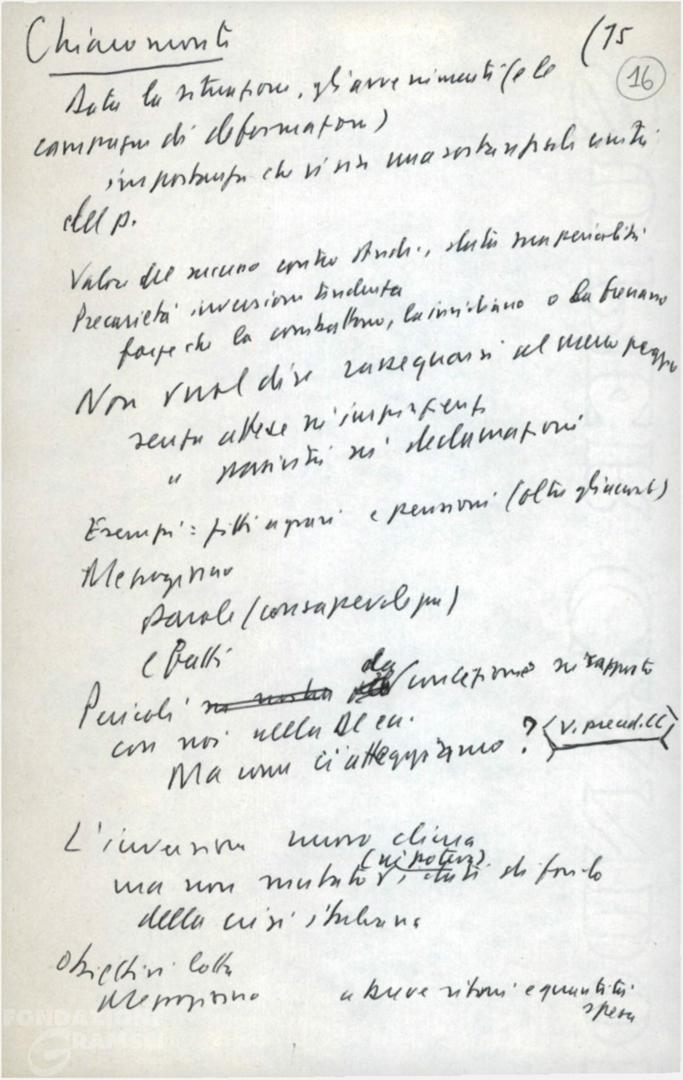 Chiaromonti (15
16
Data la situazione, gli avvenimenti (e le
campagne di deformazioni)
importanza che vi sia una sostanziale unità
del p.
Valore del successo contro Andr., data sua pericolosità
Precarietà inversione tendenza
forze che la combattono, la insidiano o la frenano
Non vuol dire rassegnarsi al meno peggio
senza attese né impazienti
" passività né declamazioni
Esempi: fitti agrari e pensioni (oltre gli aumenti)
Mezzogiorno
Parole (consapevolezza)
e fatti
Pericoli da concezione nei rapporti
con noi nella DC ecc.
Ma come ci atteggiamo? (v. preced. CC)
L'inversione nuovo clima
ma non mutato (né poteva) i dati di fondo
della crisi italiana
Obiettivi lotta
Mezzogiorno a breve ritorni e quantità
spesa
FONDAZIONE
GRAMSCI